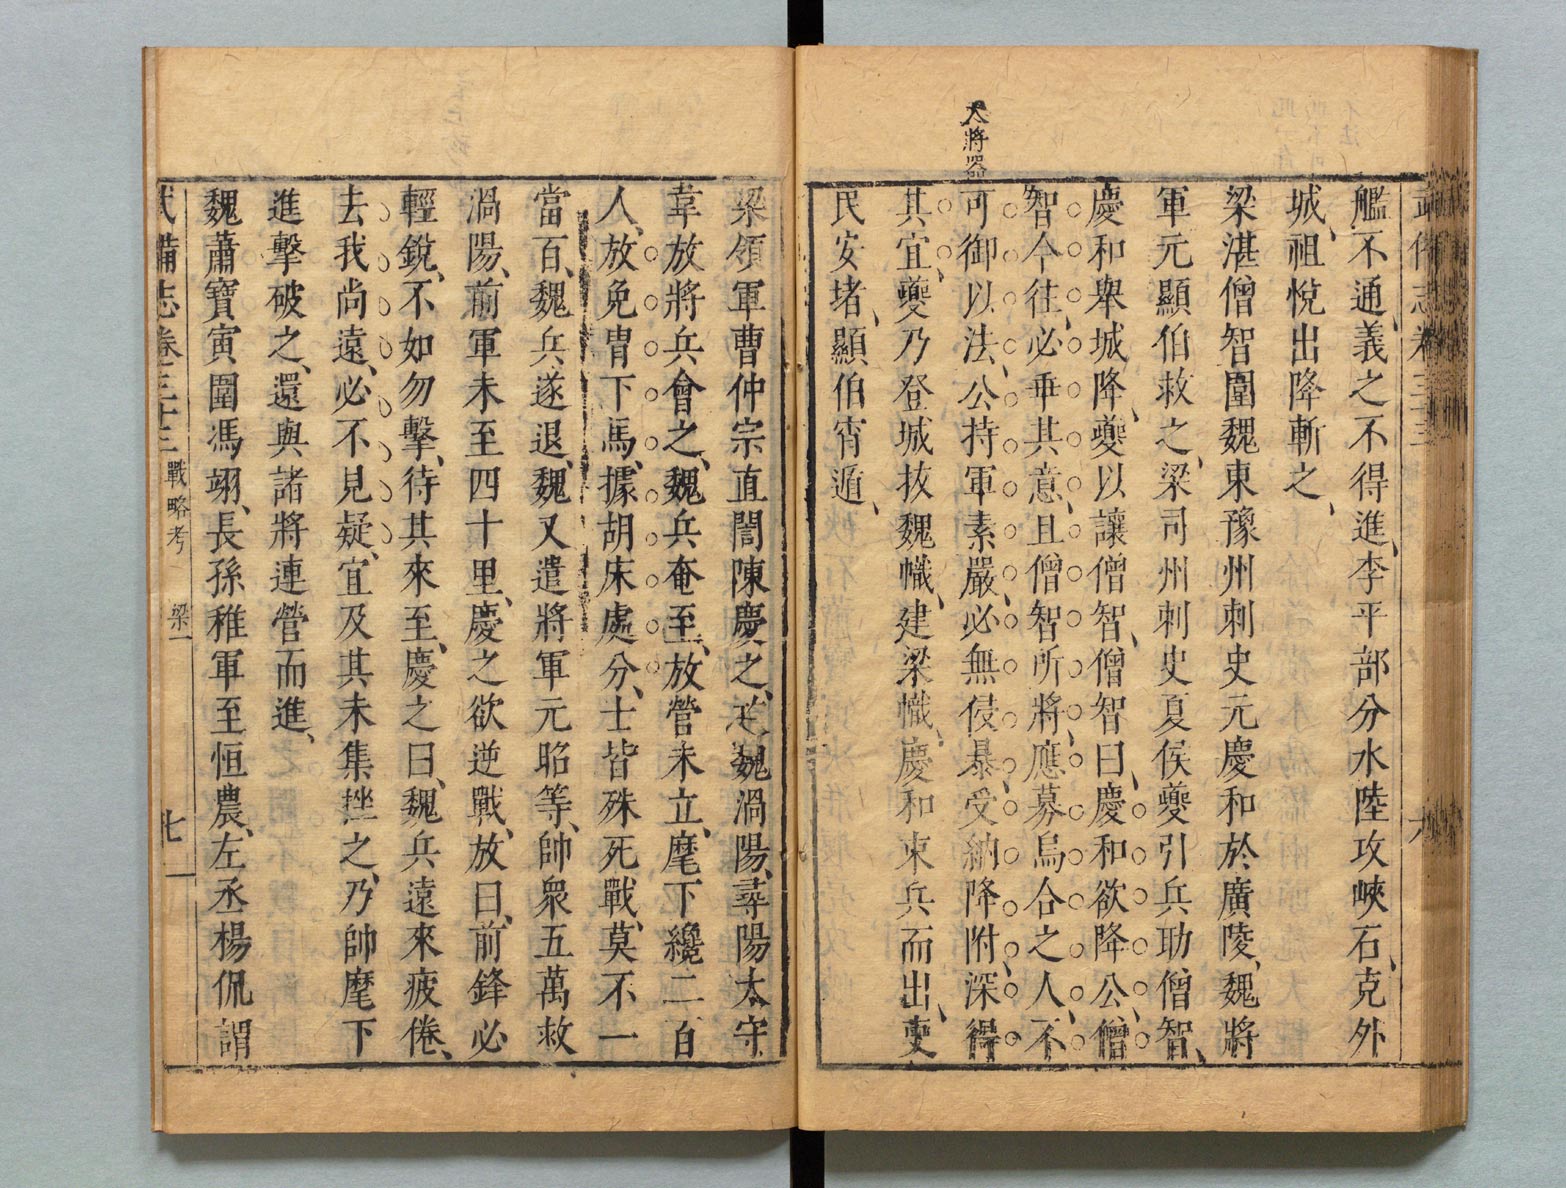 武備志卷三十三
六
艦不通、義之不得進、李平部分水陸攻峽石、克外
城、祖悅出降斬之、
梁湛僧智圍魏東豫州刺史元慶和於廣陵、魏將
軍元顯伯救之、梁司州刺史夏侯夔引兵助僧智、
慶和舉城降、夔以讓僧智、僧智曰、慶和欲降公、僧
智今往、必乖其意、且僧智所將、應募烏合之人、不
可御以法、公持軍素嚴、必無侵暴、受納降附、深得
其宜、夔乃登城拔魏幟、建梁幟、慶和束兵而出、吏
民安堵、顯伯宵遁、
大將器
梁領軍曹仲宗直閤陳慶之、攻魏渦陽、尋陽太守
韋放將兵會之、魏兵奄至、放營未立、麾下纔二百
人、放免胄下馬、據胡床處分、士皆殊死戰、莫不一
當百、魏兵遂退、魏又遣將軍元昭等、帥衆五萬救
渦陽、前軍未至四十里、慶之欲逆戰、放曰、前鋒必
輕銳、不如勿擊、待其來至、慶之曰、魏兵遠來疲倦、
去我尚遠、必不見疑、宜及其未集挫之、乃帥麾下
進擊破之、還與諸將連營而進、
魏蕭寶寅圍馮翊、長孫稚軍至恒農、左丞楊侃謂
武備志卷三十三 戰略考 梁一
七